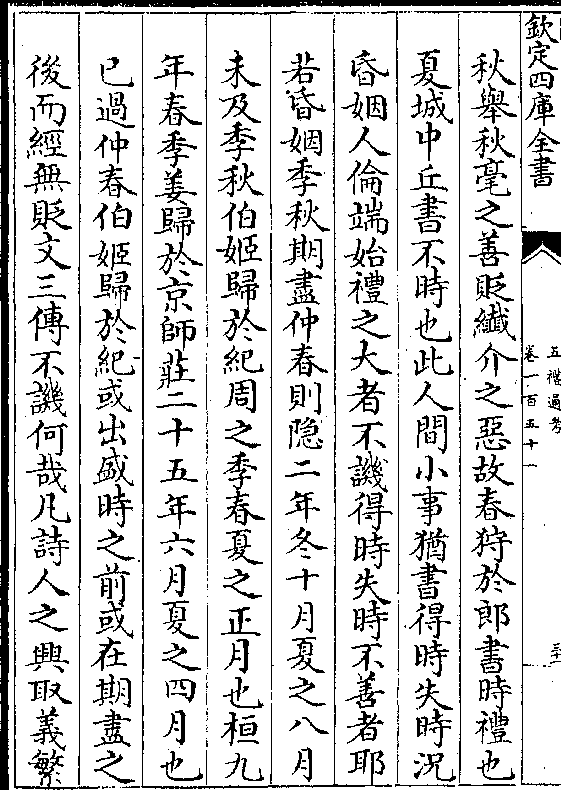 欽定四庫全書
五禮通考
卷一百五十一
秋舉秋毫之善貶纖介之惡故春狩於郎書時禮也
夏城中丘書不時也此人間小事猶書得時失時況
昏姻人倫端始禮之大者不譏得時失時不善者耶
若昏姻季秋期盡仲春則隠二年冬十月夏之八月
未及季秋伯姬歸於紀周之季春夏之正月也桓九
年春季姜歸於京師莊二十五年六月夏之四月也
已過仲春伯姬歸於紀或出盛時之前或在期盡之
後而經無貶文三傳不譏何哉凡詩人之興取義繁